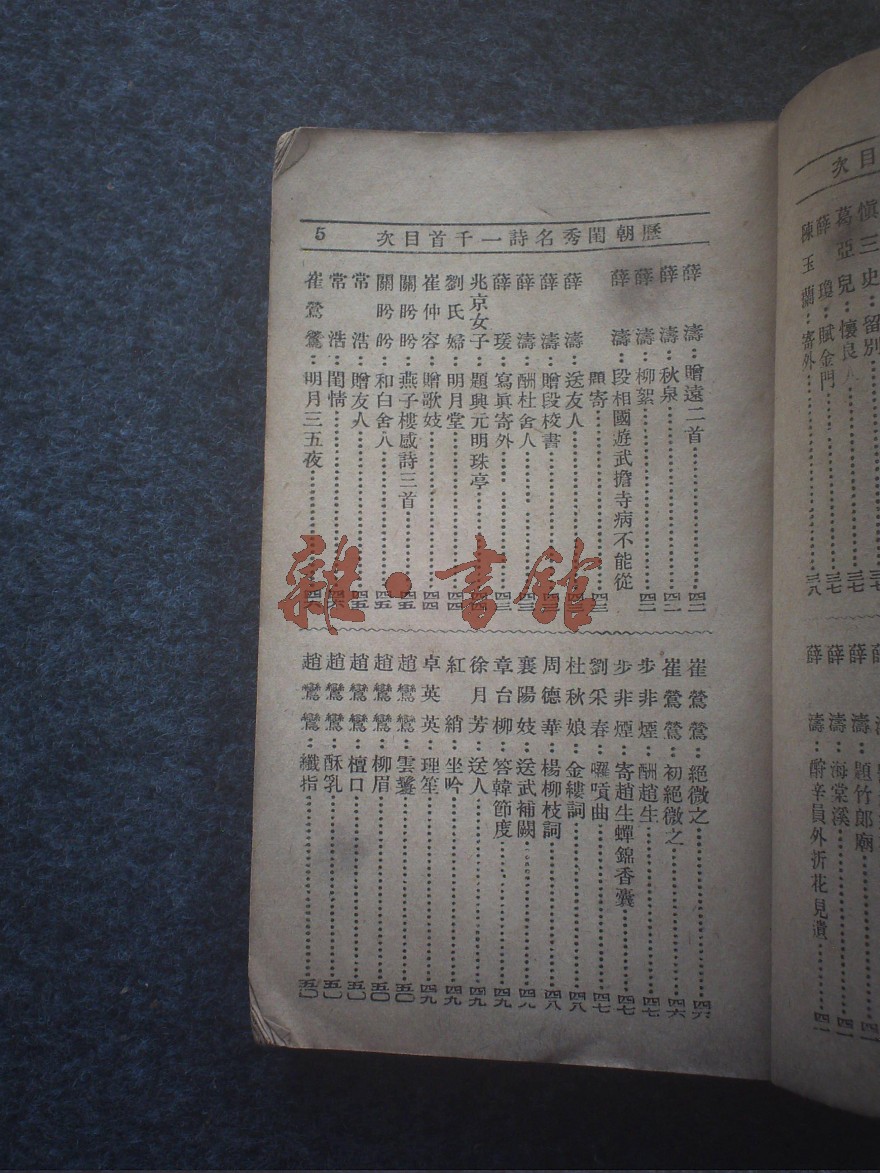 歷朝閨秀名詩一千首目次 5
薛濤：贈遠二首 四二
薛濤：秋泉 四二
薛濤：柳絮 四二
薛濤：段相國遊武擔寺病不能從
題寄 四三
薛濤：送友人 四三
薛濤：贈段校書 四三
薛濤：酬杜舍人 四三
薛瑗：寫眞寄外 四三
兆京女子：題興元明珠亭 四四
劉氏婦：明月堂 四四
崔仲容：贈歌妓 四四
關盻盻：燕子樓感詩三首 四五
關盻盻：和白舍人 四五
常浩：贈友人 四五
常浩：閨情
崔鶯鶯：明月三五夜
崔鶯鶯：絕微之 四六
崔鶯鶯：初絕微之 四六
步非煙：酬趙生 四七
步非煙：寄趙生蟬錦香囊 四七
劉采春：囉嗊曲 四七
杜秋娘：金縷詞 四八
周德華：楊柳枝詞 四八
襄陽妓：送武補闕 四九
章台柳：答韓節度 四九
徐月芳：送人 四九
紅綃：坐吟 四九
卓英英：理笙 四九
趙鸞鸞：雲鬟 五〇
趙鸞鸞：柳眉 五〇
趙鸞鸞：檀口
趙鸞鸞：酥乳
趙鸞鸞：纖指
雜·書館
次目
愼三史：留別
葛亞兒：懷良人
薛瓊：賦金門 三七
陳玉蘭：寄外 三八
薛濤：題竹郎廟
薛濤：海棠溪
薛濤：酧辛員外折花見遺